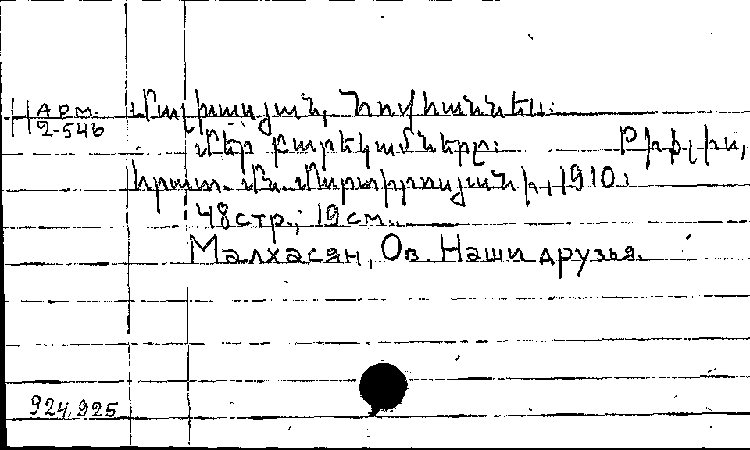 Н АРМ. 2-546 Մալխասյան, Հովհաննես.
Մեր բարեկամները: Թիֆլիս,
հրատ. Մն. Մարտիրոսյանի, 1910:
48 стр.; 19 см.
Малхасян, Ов. Наши друзья.
924,925